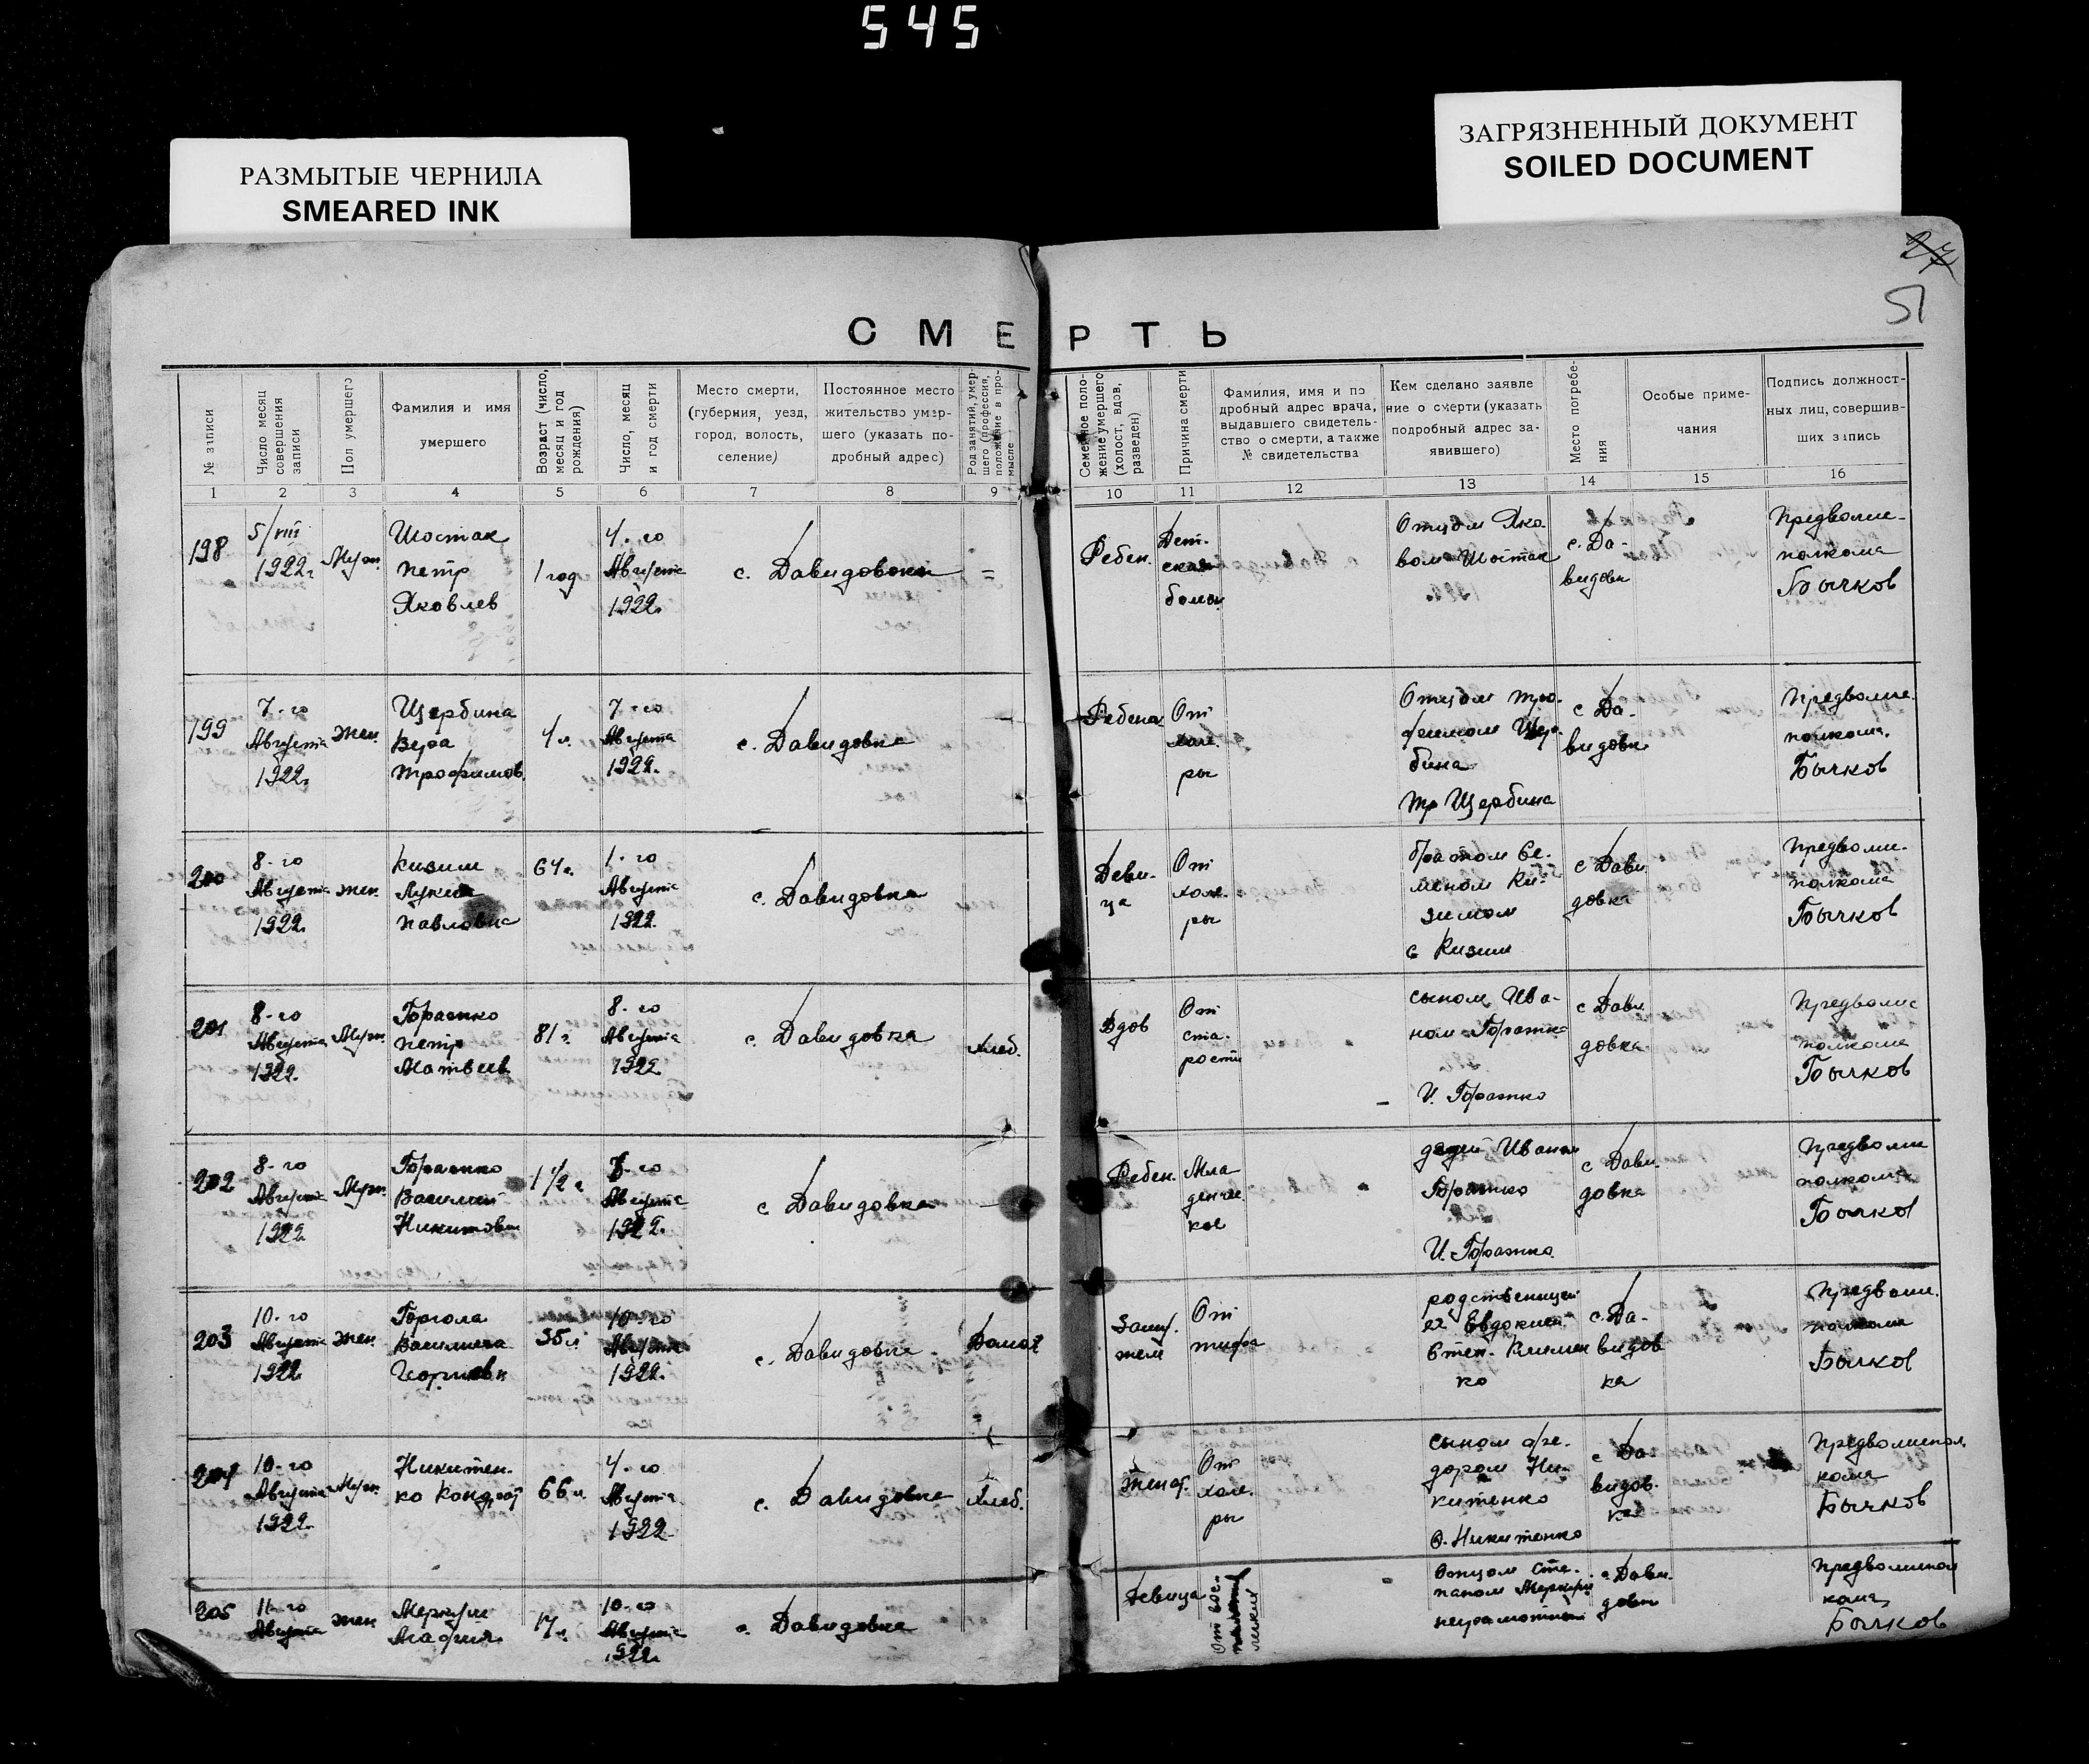 545
РАЗМЫТЫЕ ЧЕРНИЛА
SMEARED INK
ЗАГРЯЗНЕННЫЙ ДОКУМЕНТ
SOILED DOCUMENT
27
51
СМЕРТЬ
№ записи
Число месяц
совершения
записи
Пол умершего
Фамилия и имя
умершего
Возраст (число,
месяц и год
рождения)
Число, месяц
и год смерти
Место смерти,
(губерния, уезд,
город, волость,
селение)
Постоянное место
жительство умер-
шего (указать по-
дробный адрес)
Род занятий, умер-
шего (профессия,
положение в про-
мысле
Семейное поло-
жение умершего
(холост, вдов,
разведен)
Причина смерти
Фамилия, имя и по
дробный адрес врача,
выдавшего свидетель-
ство о смерти, а также
№ свидетельства
Кем сделано заявле
ние о смерти (указать
подробный адрес за-
явившего)
Место погребе-
ния
Особые приме-
чания
Подпись должност-
ных лиц, совершив-
ших запись
1 2 3 4 5 6 7 8 9 10 11 12 13 14 15 16
198
5/VIII
1922г
Муж.
Шостак
Петр
Яковлев
1 год
4-го
Августа
1922.
с. Давидовка
=
Ребен.
Дет-
ская
болезн
Отцом Яко-
вом Шостак
с. Да-
видовк
Предволис-
полкома
Бычков
199
7-го
Августа
1922г
жен.
Щербина
Вера
Трофимов
4 г.
7-го
Августа
1922.
с. Давидовка
Ребенок
От
холе-
ры
Отцом Тро-
фимом Щер-
бина
Тр Щербина
с Да-
видовк
Предволис-
полкома.
Бычков
200
8-го
Августа
1922.
жен.
Кизим
Лукия
Павловна
64г.
1-го
Августа
1922.
с. Давидовка
Деви-
ца
От
холе-
ры
братом Се-
меном Ки-
зимом
С Кизим
с Дави
довка
Предволис-
полкома
Бычков
201
8-го
Августа
1922.
Муж.
Горатко
Петр
Матвеев
81 г.
8-го
Августа
1922
с. Давидовка
Хлеб.
Вдов
От
ста-
рости
сыном Ива-
ном Горатко
И. Горатко
с Дави
довка
Предволис
полкома
Бычков
202
8-го
Августа
1922
Муж.
Горатко
Василий
Никитович
1 1/2 г
8-го
Августа
1922.
с Давидовка
Ребен.
Мла
денчес
кое
дядей Иваном
Горатко
И. Горатко
с Дави-
довка
Предволис
полкома
Бычков
203
10-го
Августа
1922
жен.
Горгола
Василиса
Георгиевн
35 л
10-го
Августа
1922.
с. Давидовка
Домох
Замуж.
жен
От
тифа
родственицей
ее Евдокией
Степ. Климен
ко
с. Да-
видов
ка
Предволис.
полкома
Бычков
204
10-го
Августа
1922.
Муж.
Никитен-
ко Кондрат
66 л
4-го
Августа
1922
с. Давидовка
Хлеб.
женат.
От
холе-
ры
сыном Фе-
дором Ни-
китенко
Ф. Никитенко
с Да-
видов-
ка
Предволиспол
кома
Бычков
205
11-го
Августа
жен
Меркули
Агафия
17 г.
10-го
Августа
1922
с. Давидовка
Девица
От вос-
легких
Отцом Сте-
паном Меркули
неграмотный
с Дави-
довк
Предволиспол
кома
Бычков